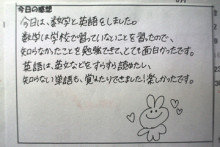 今日の感想
今日は、数学と英語をしました。
数学は学校で習っていないことを習たので、
知らなかったことを勉強できて、とても面白かったです。
英語は、英文などをすらすら読めたい、
知らない単語も覚えたりできました!楽しかったです。